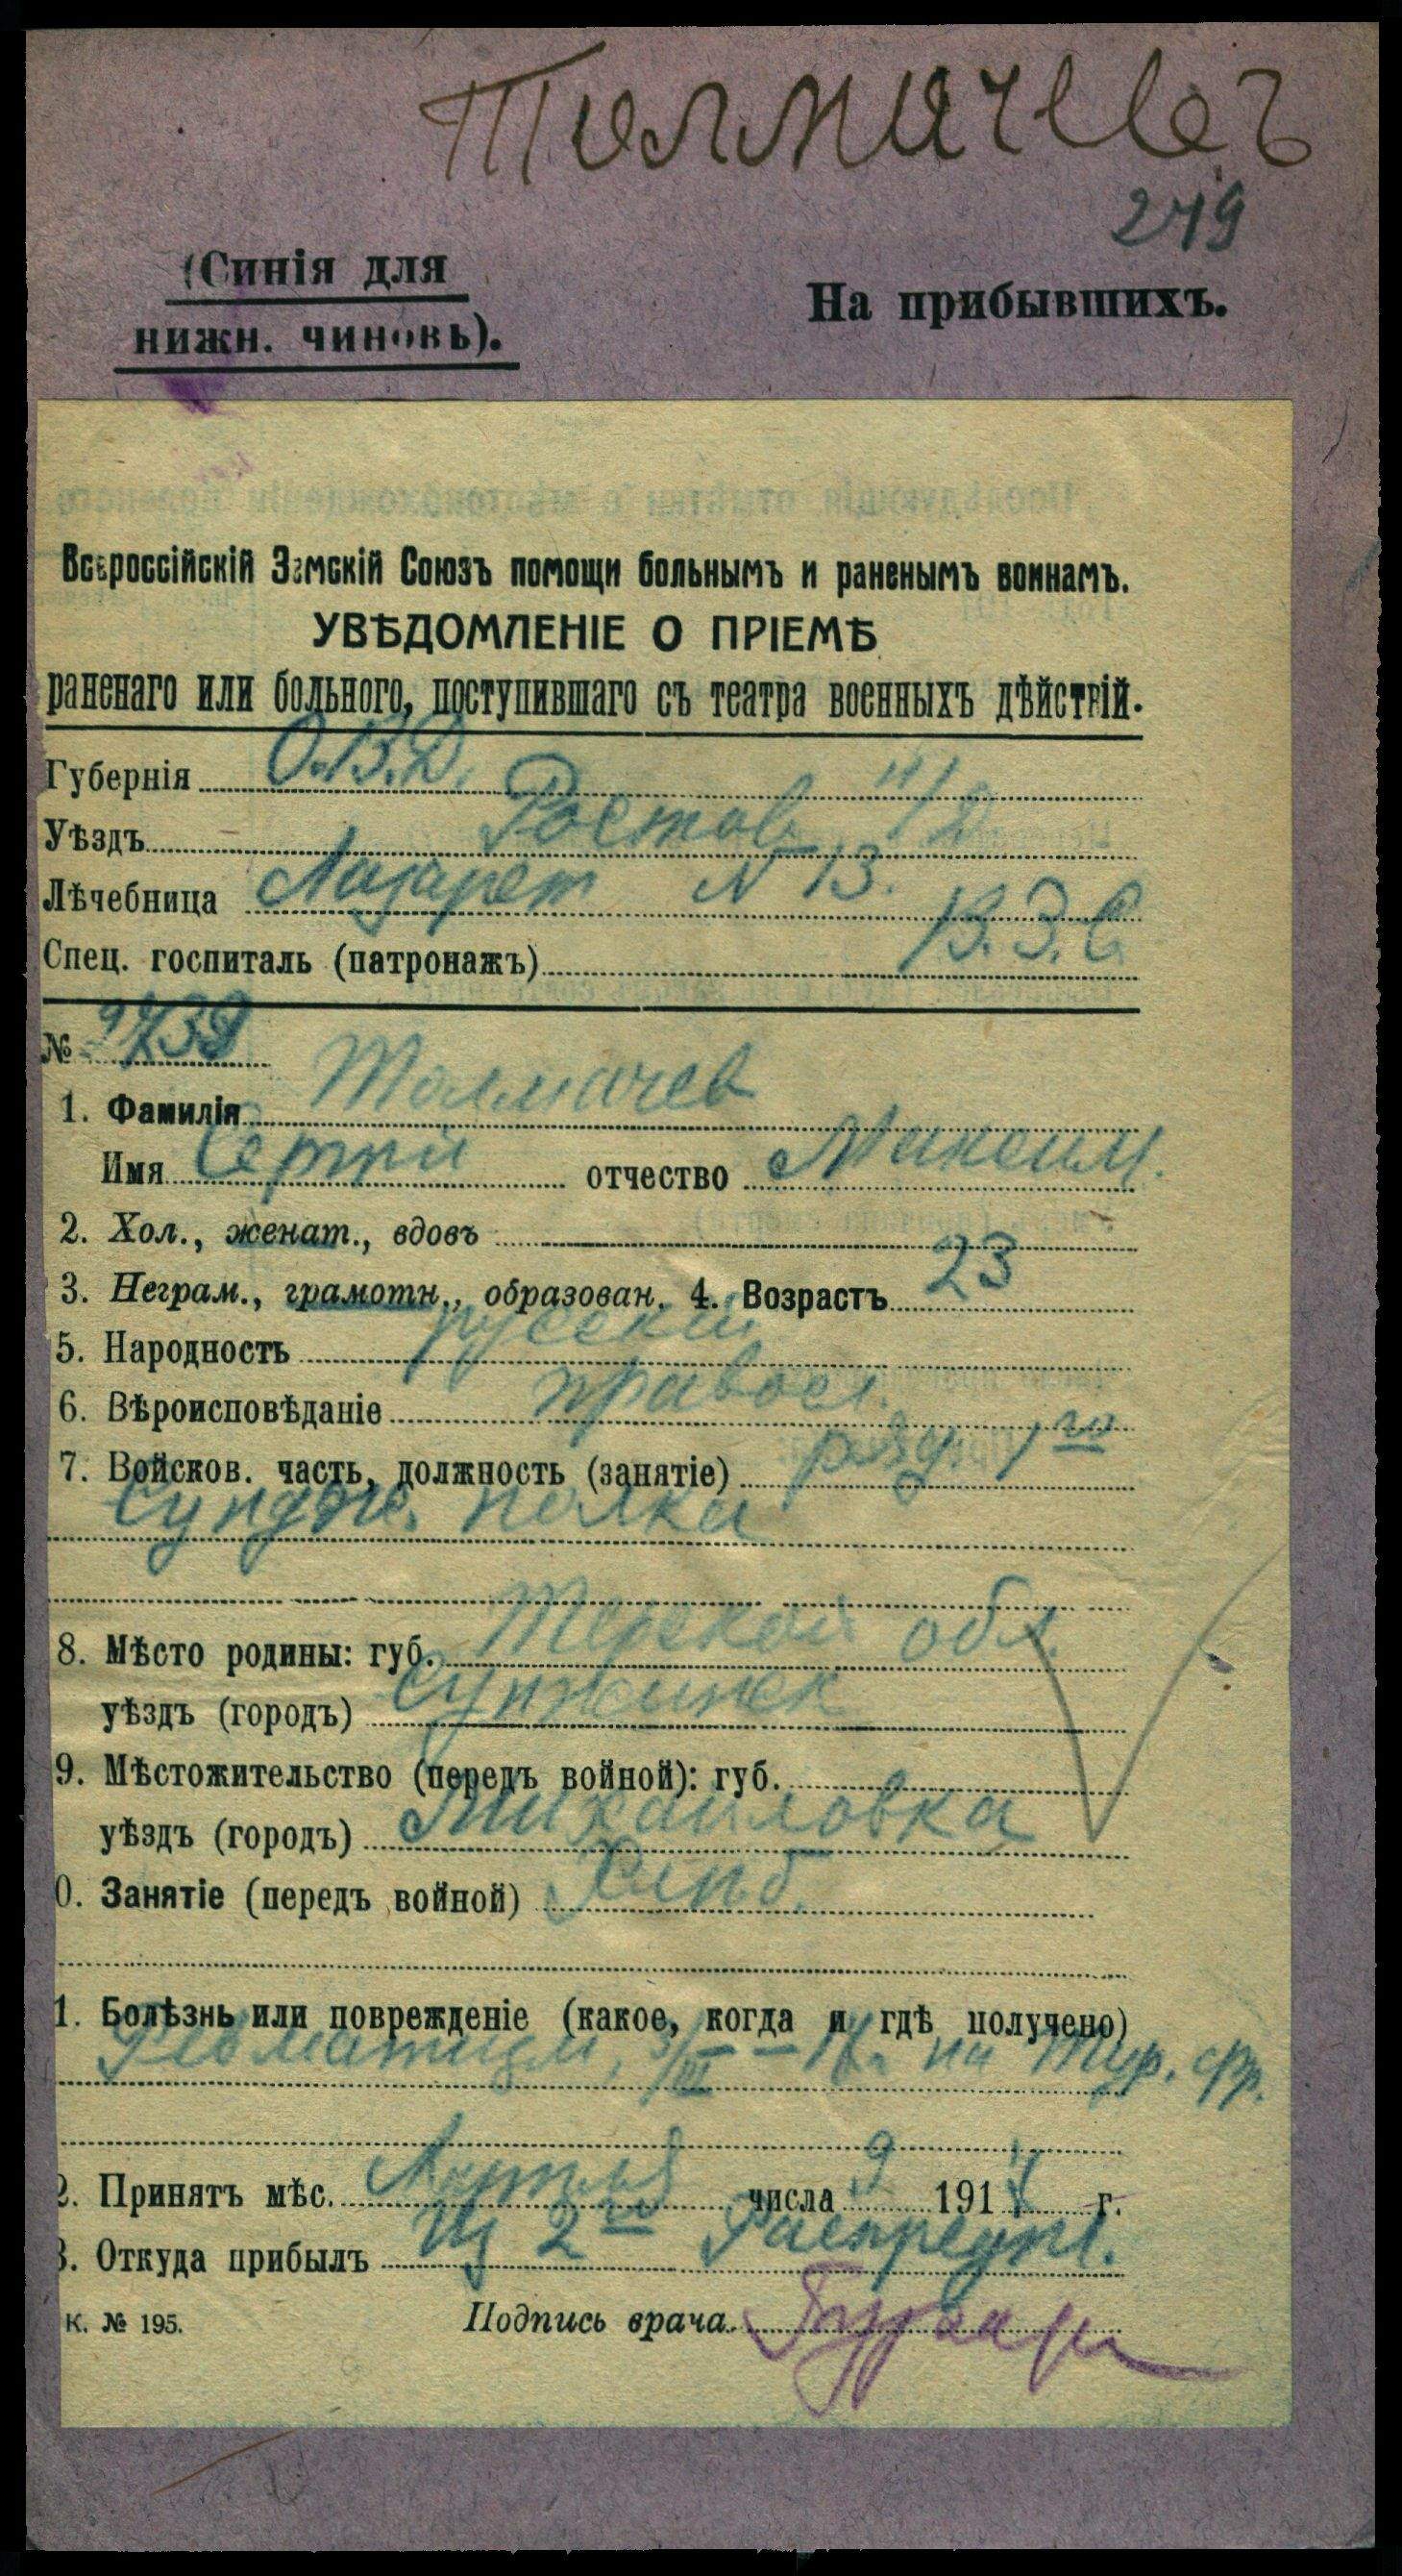 Толмачевъ
249
(Синія для
нижн. чиновъ).
На прибывшихъ.
Всероссійскій Земскій Союзъ помощи больнымъ и раненымъ воинамъ.
УВѢДОМЛЕНІЕ О ПРІЕМѢ
раненаго или больного, поступившаго съ театра военныхъ дѣйствій.
Губернія О.В.Д.
Уѣздъ Ростов н/Д
Лѣчебница Лазарет N 13.
Спец. госпиталь (патронажъ) В.З.С.
№
1. Фамилія Толмачев
Имя Сергей отчество Максим.
2. Хол., женат., вдовъ
3. Неграм., грамотн., образован. 4. Возрастъ 23
5. Народность русский
6. Вѣроисповѣданіе правосл.
7. Войсков. часть, должность (занятіе) ряд. 1го
Сунджс. полка
8. Мѣсто родины: губ. Терской обл.
уѣздъ (городъ) Сунженск
9. Мѣстожительство (передъ войной): губ.
уѣздъ (городъ) Михайловка
0. Занятіе (передъ войной) Хлеб.
1. Болѣзнь или поврежденіе (какое, когда и гдѣ получено)
Ревматизм, на Тур. фр.
2. Принятъ мѣс. Апреля числа 9 1917 г.
3. Откуда прибылъ Из 2го Распред.
К. № 195.
Подпись врача